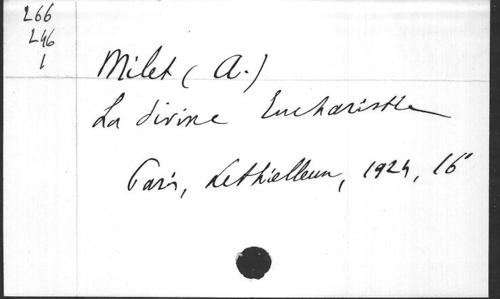 266
246
1
Milet (A.)
La divine Eucharistie
Paris, Lethielleux, 1924, 16°